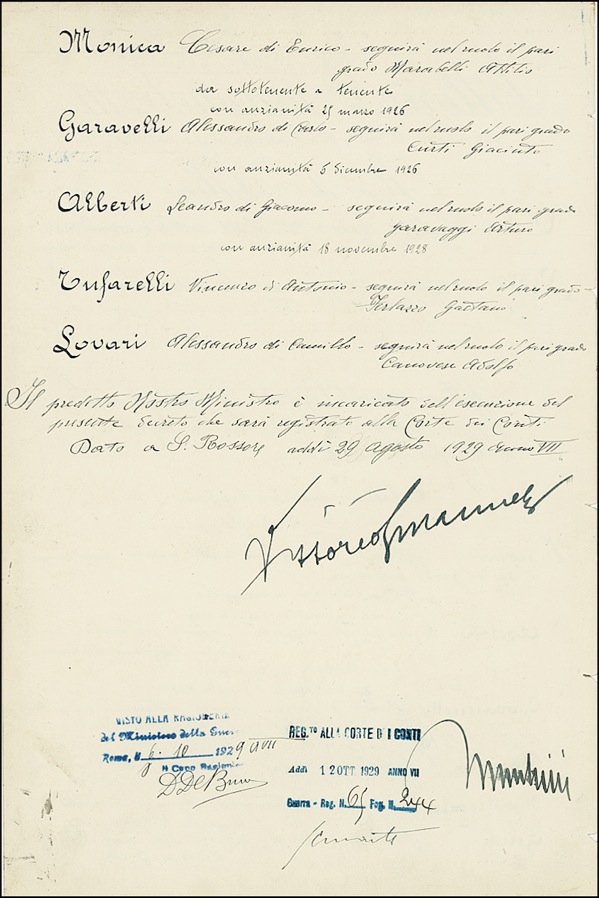 Monica Cesare di Enrico - seguirà nel ruolo il pari
grado Marabelli Attilio
da sottotenente a tenente
con anzianità 25 marzo 1926
Garavelli Alessandro di Carlo - seguirà nel ruolo il pari grado
Curti Giacinto
con anzianità 5 dicembre 1926
Alberti Leandro di Giacomo - seguirà nel ruolo il pari grado
Garavaggi Arturo
con anzianità 18 novembre 1928
Tufarelli Vincenzo di Antonio - seguirà nel ruolo il pari grado -
Terlazzo Gaetano
Lovari Alessandro di Camillo - seguirà nel ruolo il pari grado
Canovese Adolfo
Il predetto Nostro Ministro è incaricato dell'esecuzione del
presente decreto che sarà registrato alla Corte dei Conti
Dato a S. Rossore addì 29 agosto 1929 Anno VII
Vittorio Emanuele
VISTO ALLA RAGIONERIA
del Ministero della Guer
Roma, li 6-10 1929 a VII
Il Capo Ragioni
REG.TO ALLA CORTE DI CONTI
Addì 12 OTT 1929 ANNO VII
Guerra - Reg. N. 65 Fog. N. 244
Mussolini